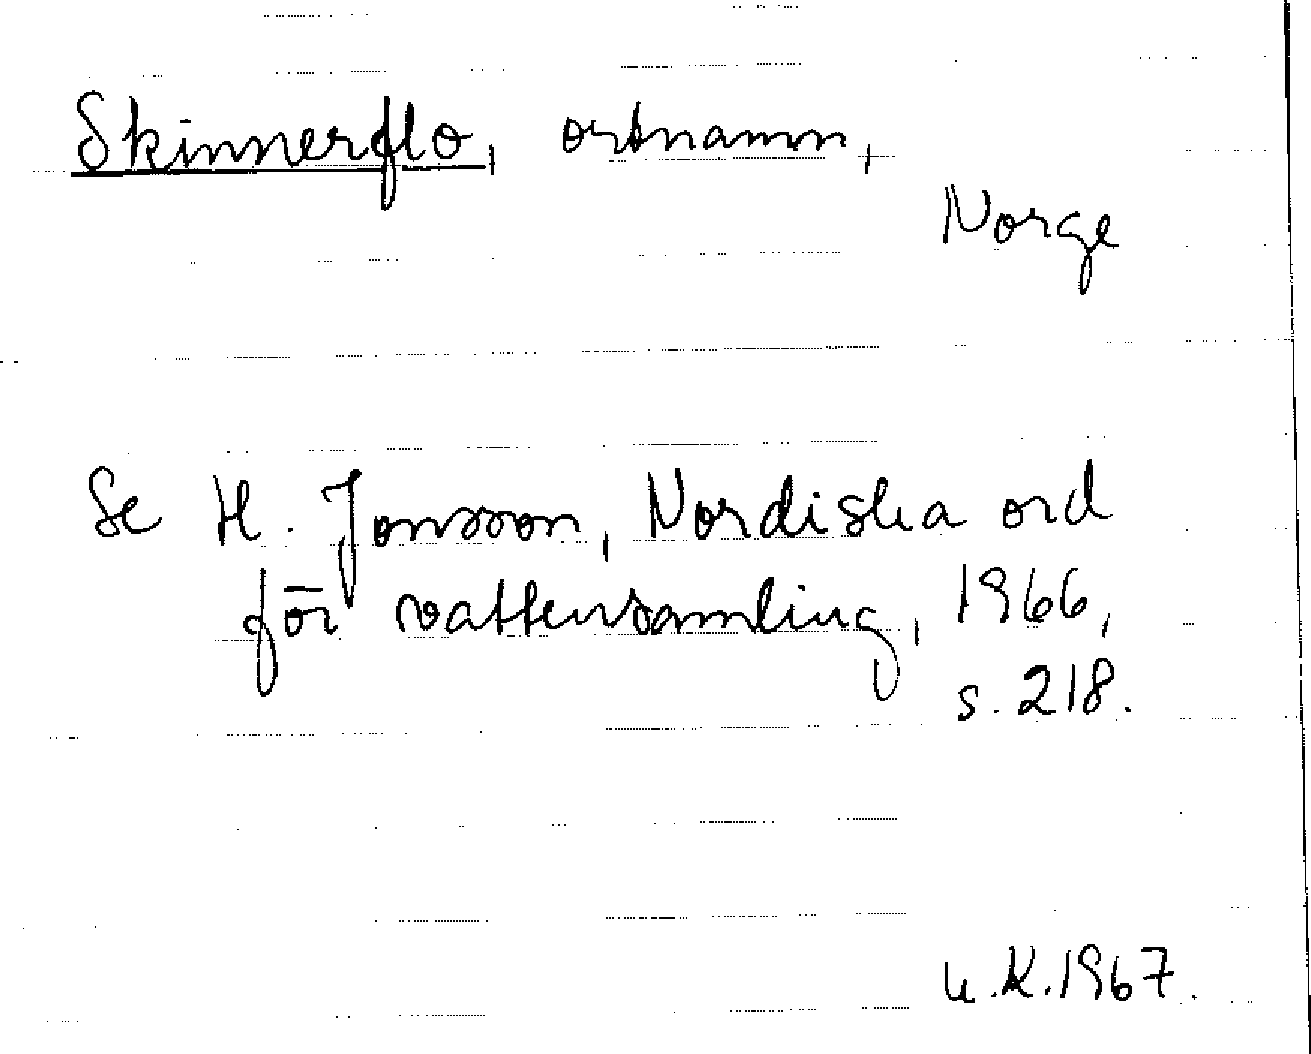 Skinnerflo, ortnamn,
Norge
Se H. Jonsson, Nordiska ord
för vattensamling, 1966,
s. 218.
u.K.1967.